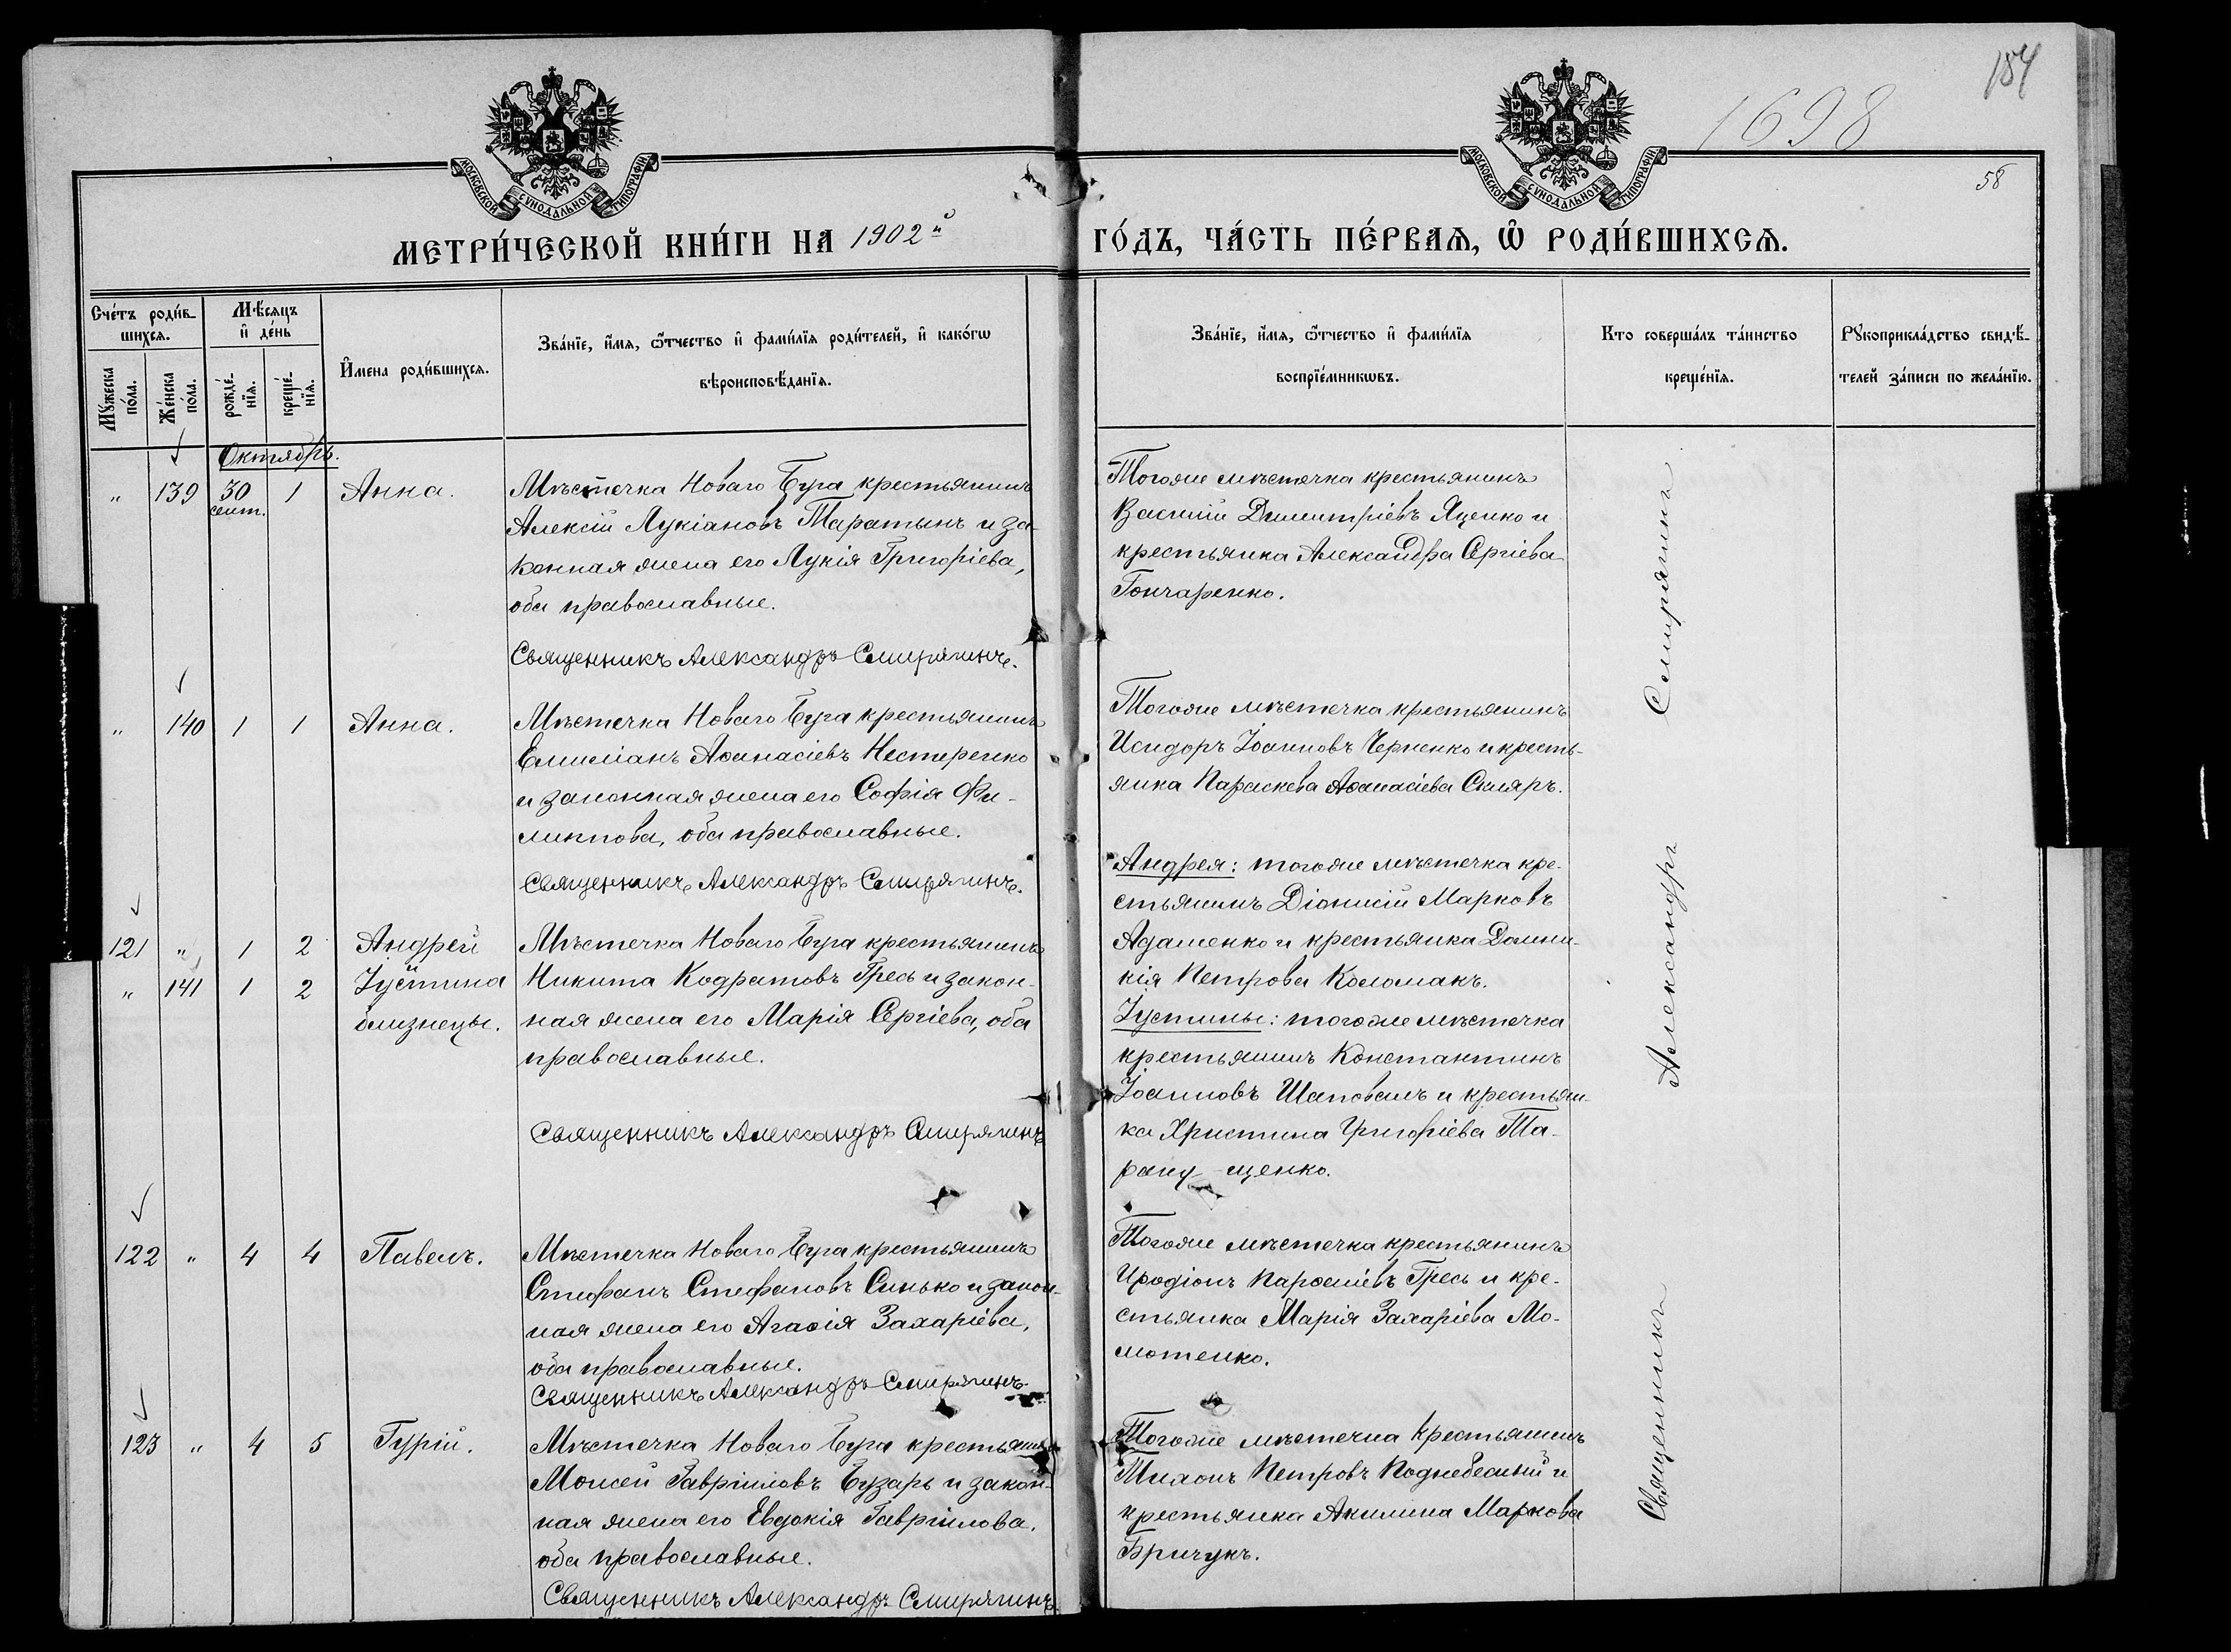 184
1698
58
МОСКОВСКОЙ СѴНОДАЛЬНОЙ ТИПОГРАФІИ
МОСКОВСКОЙ СѴНОДАЛЬНОЙ ТИПОГРАФІИ
МЕТРИ́ЧЕСКОЙ КНИ́ГИ НА 1902й ГО́ДЪ, ЧА́СТЬ ПЕ́РВАѦ, Ѡ҆ РОДИ́ВШИХСѦ.
Сче́тъ роди́в-
шихсѧ.
Мѣ́сѧцъ
и҆ де́нь
Мꙋ́жеска
по́ла.
Же́нска
по́ла.
рожде́-
нїѧ.
креще́-
нїѧ.
И҆мена роди́вшихсѧ.
Зва́нїе, и҆́мѧ, ѻ҆́тчество и҆ фами́лїѧ роди́телей, и҆ како́гѡ
вѣроисповѣ́данїѧ.
Зва́нїе, и҆́мѧ, ѻ҆́тчество и҆ фами́лїѧ
воспрїе́мникѡвъ.
Кто соверша́лъ та́инство
креще́нїѧ.
Рꙋкоприкла́дство свидѣ́-
телей за́писи по жела́нїю.
Октябрь.
" 139 30 1 Анна.
сент.
Мѣстечка Новаго Буга крестьянинъ
Алексій Лукіановъ Таратынъ и за-
конная жена его Лукія Григоріева,
оба православные.
Священникъ Александръ Смирягинъ.
Тогоже мѣстечка крестьянинъ
Василій Димитріевъ Яценко и
крестьянка Александра Сергіева
Гончаренко.
" 140 1 1 Анна.
Мѣстечка Новаго Буга крестьянинъ
Емиліанъ Аѳанасіевъ Нестеренко
и законная жена его Софія Фи-
липпова, оба православные.
Священникъ Александръ Смирягинъ.
Тогоже мѣстечка крестьянинъ
Исидоръ Іоанновъ Черненко и кресть-
янка Параскева Аѳанасіева Скляръ.
121 " 1 2 Андрей
" 141 1 2 Іустина
близнецы.
Мѣстечка Новаго Буга крестьянинъ
Никита Кодратовъ Гресь и закон-
ная жена его Марія Сергіева, оба
православные.
Священникъ Александръ Смирягинъ
Андрея: тогоже мѣстечка кре-
стьянинъ Діонисій Марковъ
Адаменко и крестьянка Домни-
кія Петрова Коломакъ.
Іустины: тогоже мѣстечка
крестьянинъ Константинъ
Іоанновъ Шаповалъ и крестьян-
ка Христина Григоріева Та-
ращенко.
122 " 4 4 Павелъ.
Мѣстечка Новаго Буга крестьянинъ
Стефанъ Стефановъ Синько и закон-
ная жена его Агаѳія Захаріева,
оба православные.
Священникъ Александръ Смирягинъ
Тогоже мѣстечка крестьянинъ
Иродіонъ Парѳеніевъ Гресь и кре-
стьянка Марія Захаріева Мо-
мотенко.
123 " 4 5 Гурій.
Мѣстечка Новаго Буга крестьянинъ
Моисей Гавріиловъ Бузарь и закон-
ная жена его Евдокія Гавріилова,
оба православные.
Священникъ Александръ Смирягинъ
Тогоже мѣстечка крестьянинъ
Тихонъ Петровъ Поднебесный и
крестьянка Акилина Маркова
Бричукъ.
Священникъ Александръ Смирягинъ